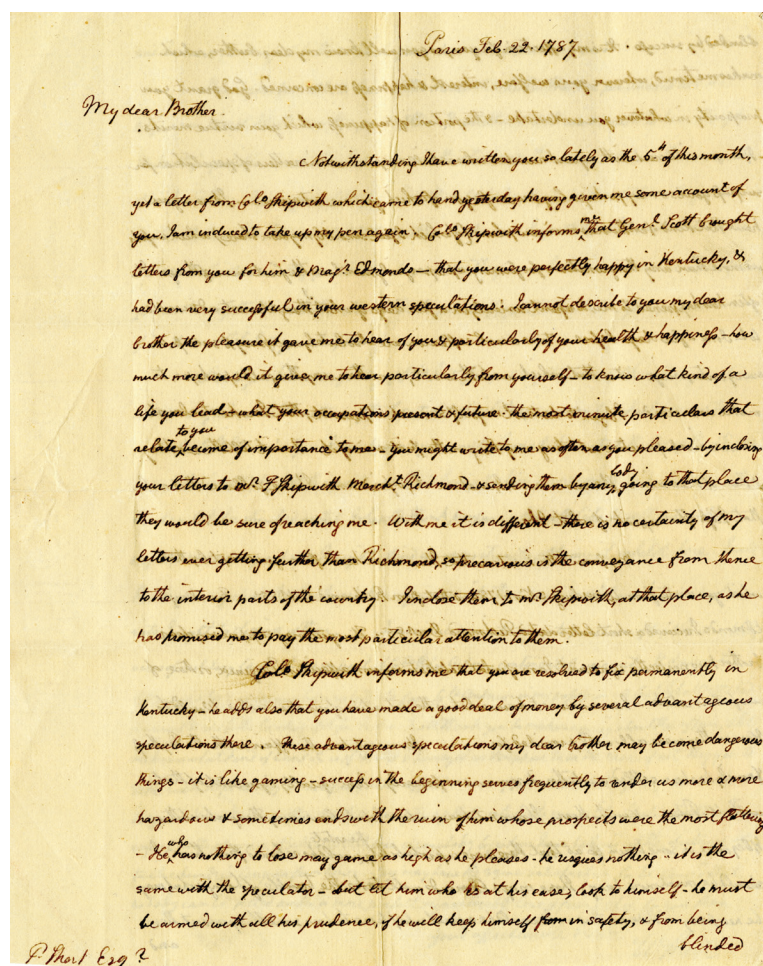 Paris Feb. 22. 1787
My dear Brother
Notwithstanding I have written you so lately as the 5th of this month,
yet a letter from Colo Skipwith which came to hand yesterday having given me some account of
you, I am induced to take up my pen again. Colo Skipwith informs me that Genl Scott brought
letters from you for him & Edmonds — that you were perfectly happy in Kentucky, &
had been very successful in your western speculations. I cannot describe to you my dear
brother the pleasure it gave me to hear of you & particularly of your health & happiness - how
much more would it give me to hear particularly from yourself - to know what kind of a
life you lead - what your occupations present & future - the most minute particulars that
relate to you become of importance to me - you might write to me as often as you pleased - by inclosing
your letters to Mr F Skipwith Mercht Richmond - & sending them by any body going to that place
they would be sure of reaching me. With me it is different - there is no certainty of my
letters ever getting further than Richmond, so precarious is the conveyance from thence
to the interior parts of the country. I inclose them to Mr Skipwith, at that place, as he
has promised me to pay the most particular attention to them.
Colo Skipwith informs me that you are resolved to fix permanently in
Kentucky - he adds also that you have made a good deal of money by several advantageous
speculations there. These advantageous speculations my dear brother may become dangerous
things - it is like gaming - success in the beginning serves frequently to render us more & more
hazardous & sometimes ends with the ruin of him whose prospects were the most flattering
- He who has nothing to lose may game as high as he pleases - he risques nothing - it is the
same with the speculator - but let him who is at his ease, look to himself - he must
be armed with all his prudence, if he will keep himself from in safety, & from being
blinded
P. Short Esqr